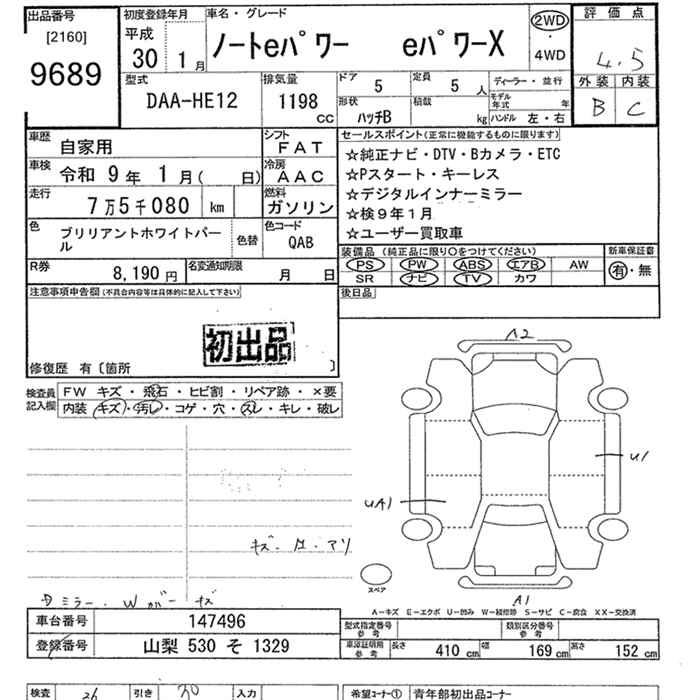 出品番号
[2160]
9689
初度登録年月
平成
30 1 月
車名・グレード
ノートeパワー eパワーX
2WD
・
4WD
評価点
4.5
外装 内装
B C
型式
DAA-HE12
排気量
1198
cc
ドア
5
定員
5 人
形状
ハッチB
積載
kg
ディーラー・並行
モデル年式 年
ハンドル 左・右
車歴
自家用
シフト
FAT
車検
令和 9 年 1 月( 日)
冷房
AAC
走行
7万5千080 km
燃料
ガソリン
色
ブリリアントホワイトパール
色替
色コード
QAB
R券
8,190 円
名変通知期限
月 日
セールスポイント(正常に機能するものに限ります)
☆純正ナビ・DTV・Bカメラ・ETC
☆Pスタート・キーレス
☆デジタルインナーミラー
☆検9年1月
☆ユーザー買取車
装備品 (純正品に限り○をつけてください)
PS PW ABS エアB AW
SR ナビ TV カワ
新車保証書
有・無
後日品
注意事項申告欄(不具合内容等は具体的に記入して下さい)
初出品
修復歴 有〔箇所 〕
検査員記入欄
FW キズ・飛石・ヒビ割・リペア跡・×要
内装 キズ・汚レ・コゲ・穴・スレ・キレ・破レ
A2
U1
UA1
A1
スペア
A-キズ E-エクボ U-凹み W-補修跡 S-サビ C-腐食 XX-交換済
車台番号 147496
登録番号 山梨 530 そ 1329
型式指定番号 参考
類別区分番号 参考
車庫証明用 参考
長さ 410 cm 幅 169 cm 高さ 152 cm
検査
引き
入力
希望コーナー① 青年部初出品コーナー